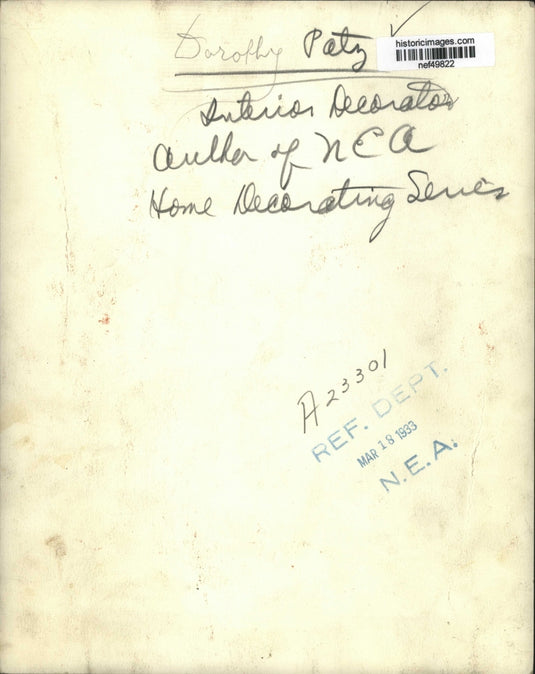 Dorothy Patz
historicimages.com
nef49822
Interior Decorator
author of NEA
Home Decorating Series
A23301
REF. DEPT.
MAR 18 1933
N.E.A.